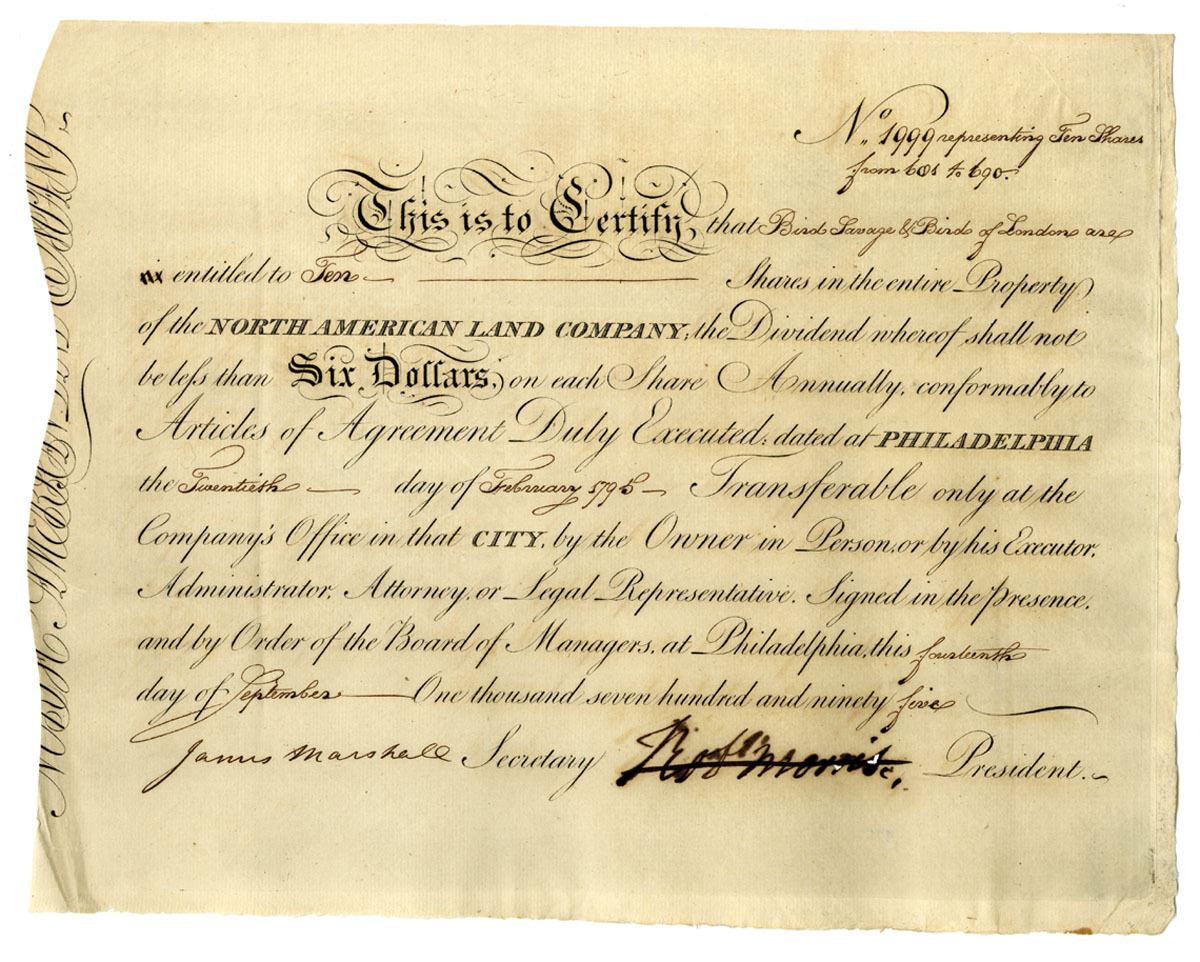 No. 1999 representing Ten Shares
from 601 to 690.
This is to Certify, that Bird Savage & Bird of London are
entitled to Ten Shares in the entire Property
of the NORTH AMERICAN LAND COMPANY; the Dividend whereof shall not
be leſs than Six Dollars, on each Share Annually, conformably to
Articles of Agreement Duly Executed; dated at PHILADELPHIA
the Twentieth day of February 1795 Transferable only at the
Company's Office in that CITY, by the Owner in Person, or by his Executor,
Administrator, Attorney, or Legal Representative. Signed in the Presence,
and by Order of the Board of Managers, at Philadelphia, this fourteenth
day of September One thousand seven hundred and ninety five
James Marshall Secretary Robt Morris President.